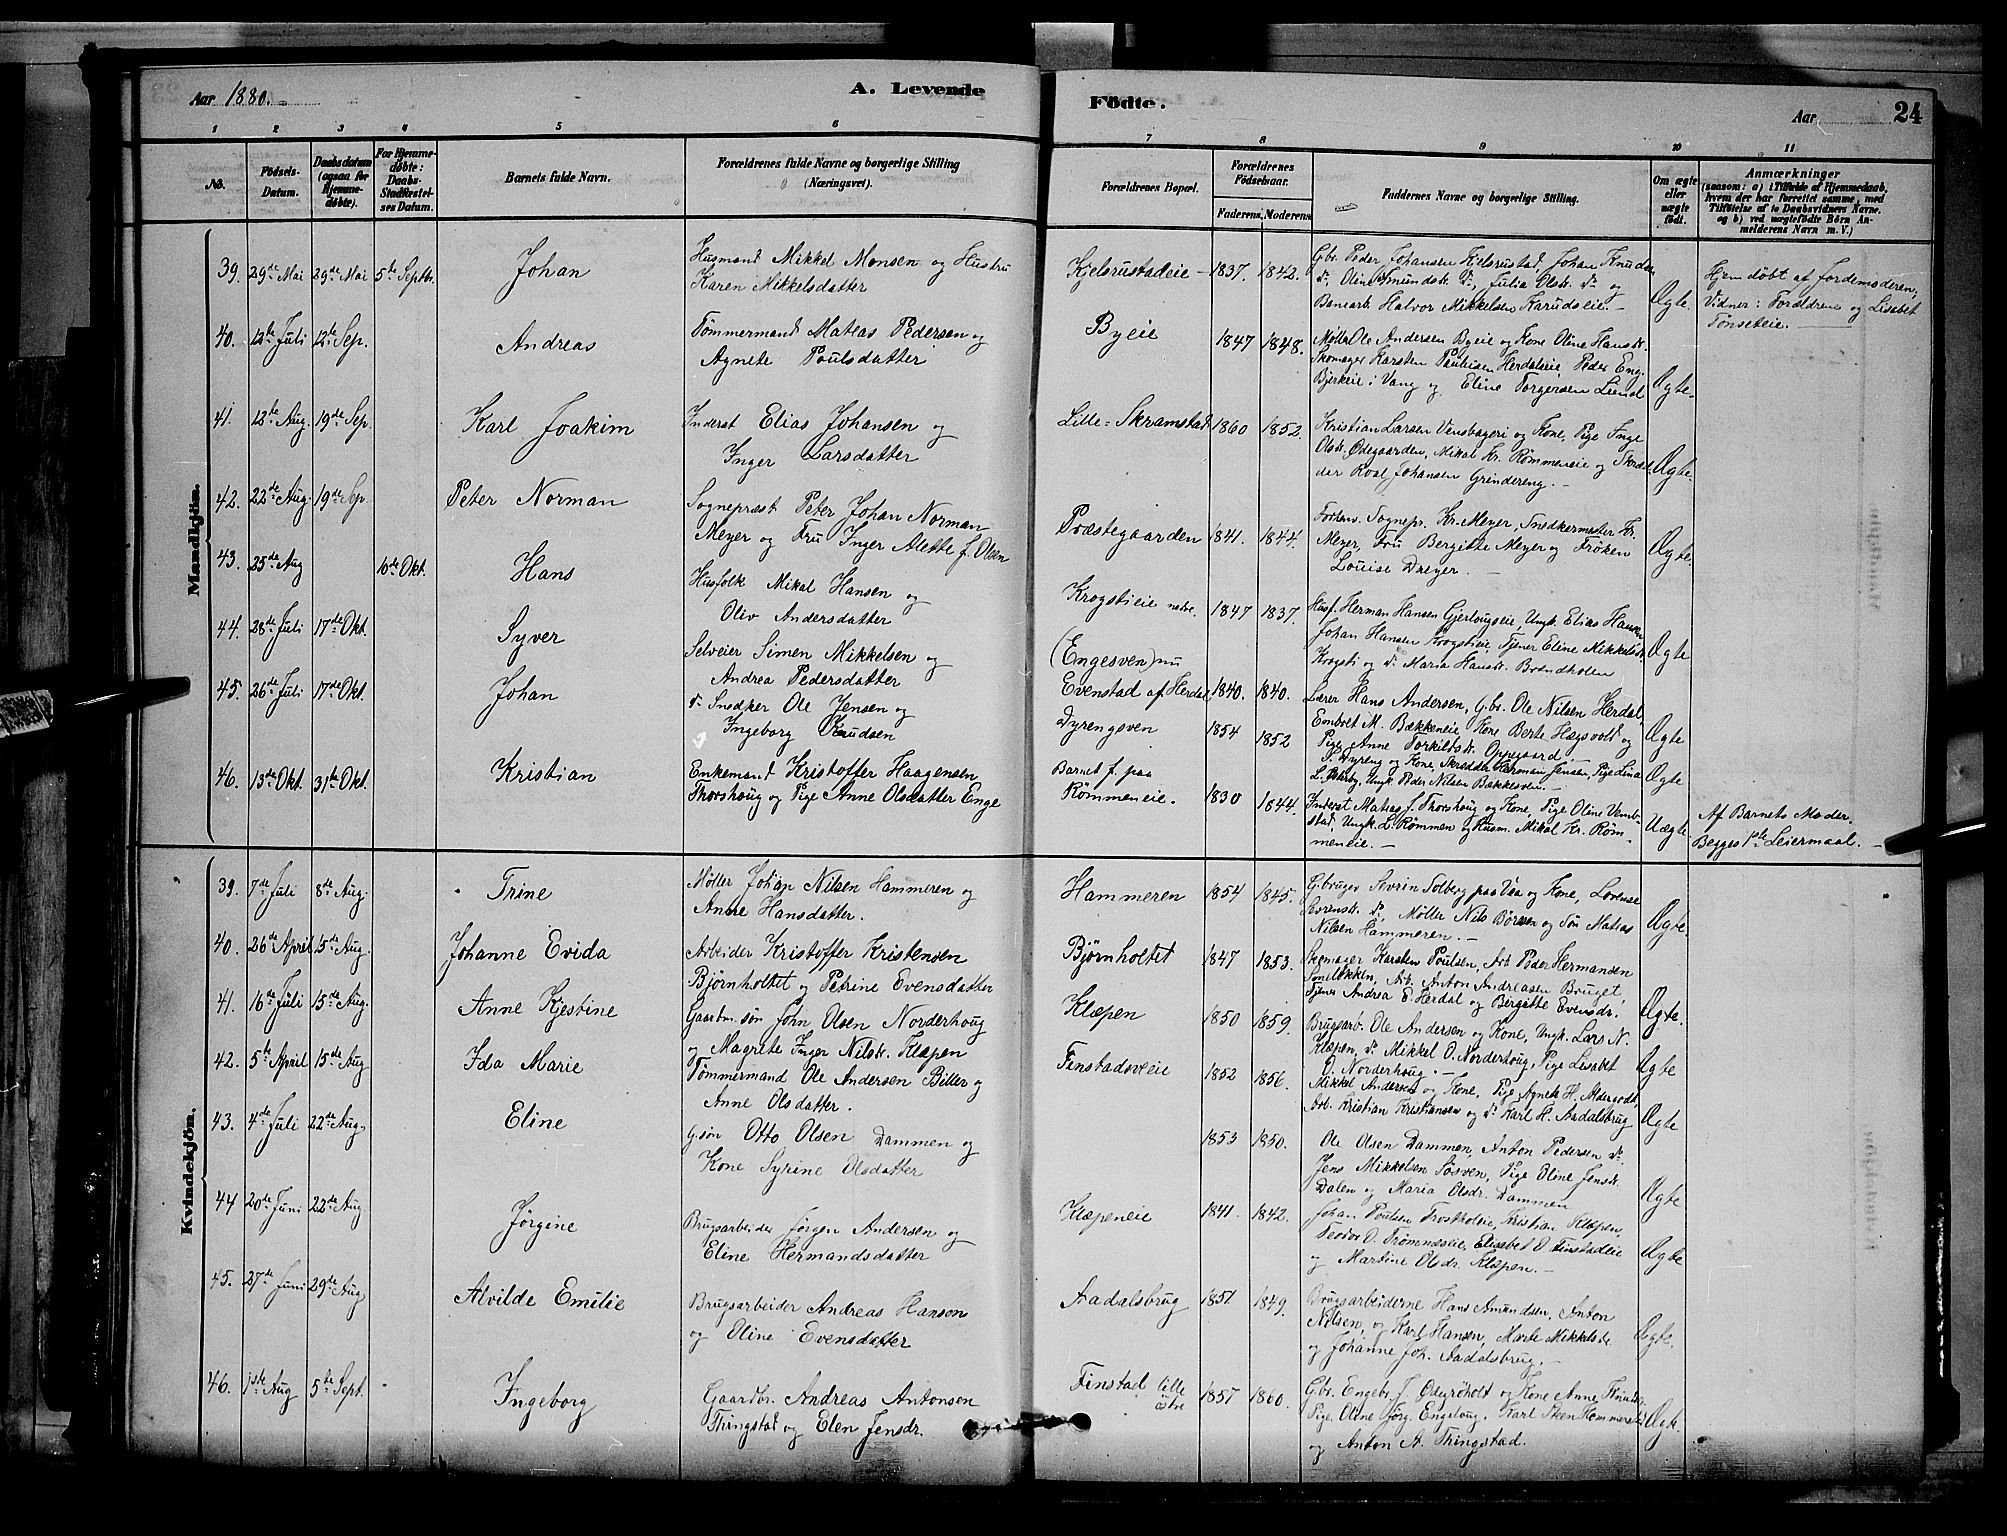 Aar 1880.
A. Levende
Födte.
Aar
24
1 2 3 4 5 6 7 8 9 10 11
No.
Födsels-Datum.
Daabsdatum (ogsaa for Hjemmedøbte).
For Hjemmedøbte: Daabs-Stadfæstelses Datum.
Barnets fulde Navn.
Forældrenes fulde Navne og borgerlige Stilling (Næringsvei).
Forældrenes Bopæl.
Forældrenes Födselsaar.
Faderens. Moderens.
Faddernes Navne og borgerlige Stilling.
Om ægte eller uægte födt.
Anmærkninger
(saasom: a) i Tilfælde af Hjemmedaab, hvem der har forrettet samme, med Tilföielse af to Daabsvidners Navne, og b) ved uægtefødte Børn Anmelderens Navn m. V.)
Mandkjön.
39. 29de Mai 29de Mai 5te Septbr. Johan
Husmand Mikkel Monsen og Hustru
Karen Mikkelsdatter
Kjelsrustadeie 1837. 1842.
Gbr. Peder Johansen Kjelsrustad, Johan Knudsen
do, Oline Amundsdr. do, Julia Olsdr. do og
Banearb. Halvor Mikkelsen Karudseie.
Ægte.
Hjemdøbt af Jordemoderen;
Vidner: Forældrene og Lisabet
Tønseteie.
40. 12te Juli 12te Sep. Andreas
Tömmermand Mateas Pedersen og
Agnete Poulsdatter
Byeie 1847 1848.
Møller Ole Andersen Byeie og Kone Oline Hansdr.
Skomager Karsten Paulsen Herdalseie, Peder Eng.
Bjerkeie i Vang og Eline Torgersen Lund
Ægte.
41. 12te Aug. 19de Sep. Karl Joakim
Inderst Elias Johansen og
Inger Larsdatter
Lille-Skramstad 1860 1852.
Kristian Larsen Vensbageri og Kone, Pige Inge
Olsdr. Ødegaarden, Mikal Kr. Rømmeneie og Skræd-
der Roal Johansen Grindereng.
Ægte.
42. 22de Aug. 19de Sep. Peter Norman
Sognepræst Peter Johan Norman
Meyer og Fru Inger Alette f. Olsen
Præstegaarden 1841. 1844.
Forhenv. Sognepr. Kr. Meyer, Snedkermester Kr.
Meyer, Fru Bergitte Meyer og Frøken
Louise Dreyer
Ægte.
43. 25de Aug 10de Okt. Hans
Husfolk Mikal Hansen og
Oliv Andersdatter
Krogstieie nedre. 1847 1837.
Husf. Herman Hansen Gjerlougseie, Ungk. Elias Hansen
Johan Hansen Krogstieie, Tjener Eline Mikkelsdr.
Krogsti og do Maria Hansdr. Brændholen
Ægte
44. 28de Juli 17de Okt. Syver
Selveier Simen Mikkelsen og
Andrea Pedersdatter
(Engesven) nu
Evenstad af Herdal 1840. 1840.
Lærer Hans Andersen, G.br. Ole Nilsen Herdal,
Embret M. Bækkeneie, Kone Berte Hægsvolt og
Pige Anne Torkildsdr. Oppegaard.
Ægte
45. 26de Juli 17de Okt. Johan
do Snedker Ole Jensen og
Ingeborg Knudsen
Dyrengsven 1854 1852
J. Dyreng og Kone, Skrædder Herman Jensen, Pige Lina
L. Viterby, Ungk. Peder Nilsen Bækkesven.
Ægte
46. 13de Okt. 31te Okt. Kristian
Enkemand Kristoffer Haagensen
Thorshoug og Pige Anne Olsdatter Enge
Barnet f. paa
Rømmeneie. 1830 1844.
Inderst Matias S. Thorshoug og Kone, Pige Oline Vemb-
stad, Ungk. L. Rømmen og Husm. Mikal Kr. Røm-
meneie.
Uægte
Af Barnets Moder.
Begges 1ste Leiermaal.
Kvindekjön.
39. 7de Juli 8de Aug. Trine
Møller Johan Nilsen Hammeren og
Anne Hansdatter.
Hammeren 1854 1845.
G.bruger Sevrin Solberg paa Vaa og Kone, Lovense
Sevrensdr. do, Møller Nils Børresen og Søn Matias
Nilsen Hammeren.
Ægte.
40. 26de April 15de Aug. Johanne Evida
Arbeider Kristoffer Kristensen
Bjørnholtet og Petrine Evensdatter
Bjørnholtet 1847 1853.
Skomager Karsten Poulsen, Arb. Peder Hermansen
Sneløkken, Arb. Anton Andreasen Bruget,
Tjener Andrea E. Herdal og Birgitte Evensdr.
Ægte.
41. 16de Juli 15de Aug. Anne Kjestine
Gaardm. søn John Olsen Norderhoug
og Magrete Inger Nilsdr. Klæpen
Klæpen 1850 1859.
Brugsarb. Ole Andersen og Kone, Ungk. Lars N.
Klæpen, do Mikkel O. Norderhoug, Pige Lisabet
O. Norderhoug.
Ægte
42. 5te April 15de Aug Ida Marie
Tömmermand Ole Andersen Biller og
Anne Olsdatter.
Finstadsveie 1852 1856.
Mikkel Andersen og Kone, Pige Agnete H. Alderodt,
Arb. Kristian Kristiansen og do Karl H. Aadalsbrug
Ægte
43. 4de Juli 22de Aug. Eline
G.søn Otto Olsen Dammen og
Kone Syrine Olsdatter
1853 1850.
Ole Olsen Dammen, Anton Pedersen do.
Jens Mikkelsen Løsven, Pige Oline Jensdr.
Dalen og Maria Olsdr. Dammen
Ægte
44 20de Juni 22de Aug. Jørgine
Brugsarbeider Jørgen Andersen og
Eline Hermandsdatter
Klæpeneie 1841. 1842.
Johan Poulsen Frostholeie, Kristian Klæpen,
Teodor O. Trömnæseie, Elisabet O. Finstadeie
og Martine Olsdr. Klæpen.
Ægte
45. 27de Juni 29de Aug Alvilde Emilie
Brugsarbeider Andreas Hanson
og Oline Evensdatter
Aadalsbrug 1851. 1849.
Brugsarbeiderne Hans Amundsen, Anton
Nilsen, og Karl Hansen, Marte Mikkelsdr.
og Johanne Joh. Aadalsbrug.
Ægte.
46. 1ste Aug 5te Sept. Ingeborg
Gaardbr. Andreas Antonsen
Thingstad og Elen Jensdr.
Finstad lille
østre 1857 1860.
G.br. Engebr. J. Odyrøholt og Kone Anne Knudsdr.
Pige Oline Jørg. Engeloug. Karl Steen Hommerstad
og Anton A. Thingstad.
Ægte.